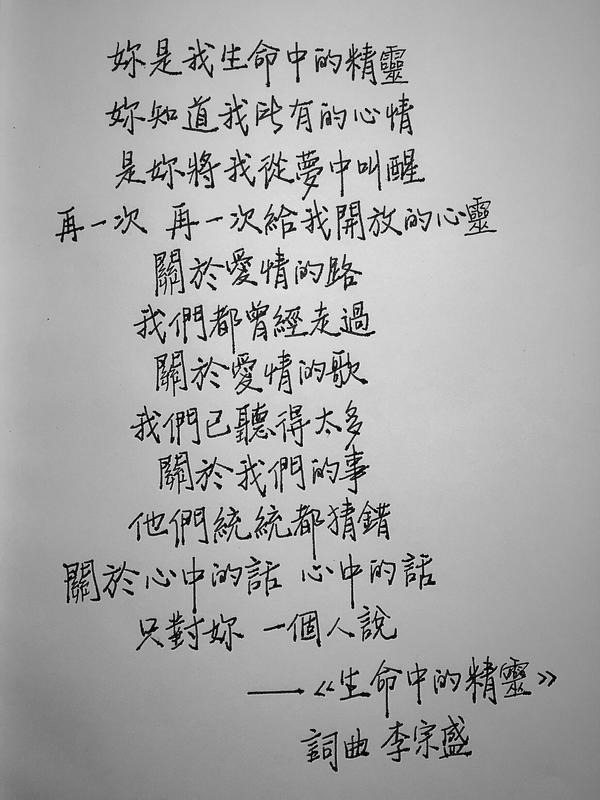 妳是我生命中的精靈
妳知道我所有的心情
是妳將我從夢中叫醒
再一次 再一次給我開放的心靈
關於愛情的路
我們都曾經走過
關於愛情的歌
我們已聽得太多
關於我們的事
他們統統都猜錯
關於心中的話 心中的話
只對妳 一個人說
——《生命中的精靈》
詞曲 李宗盛